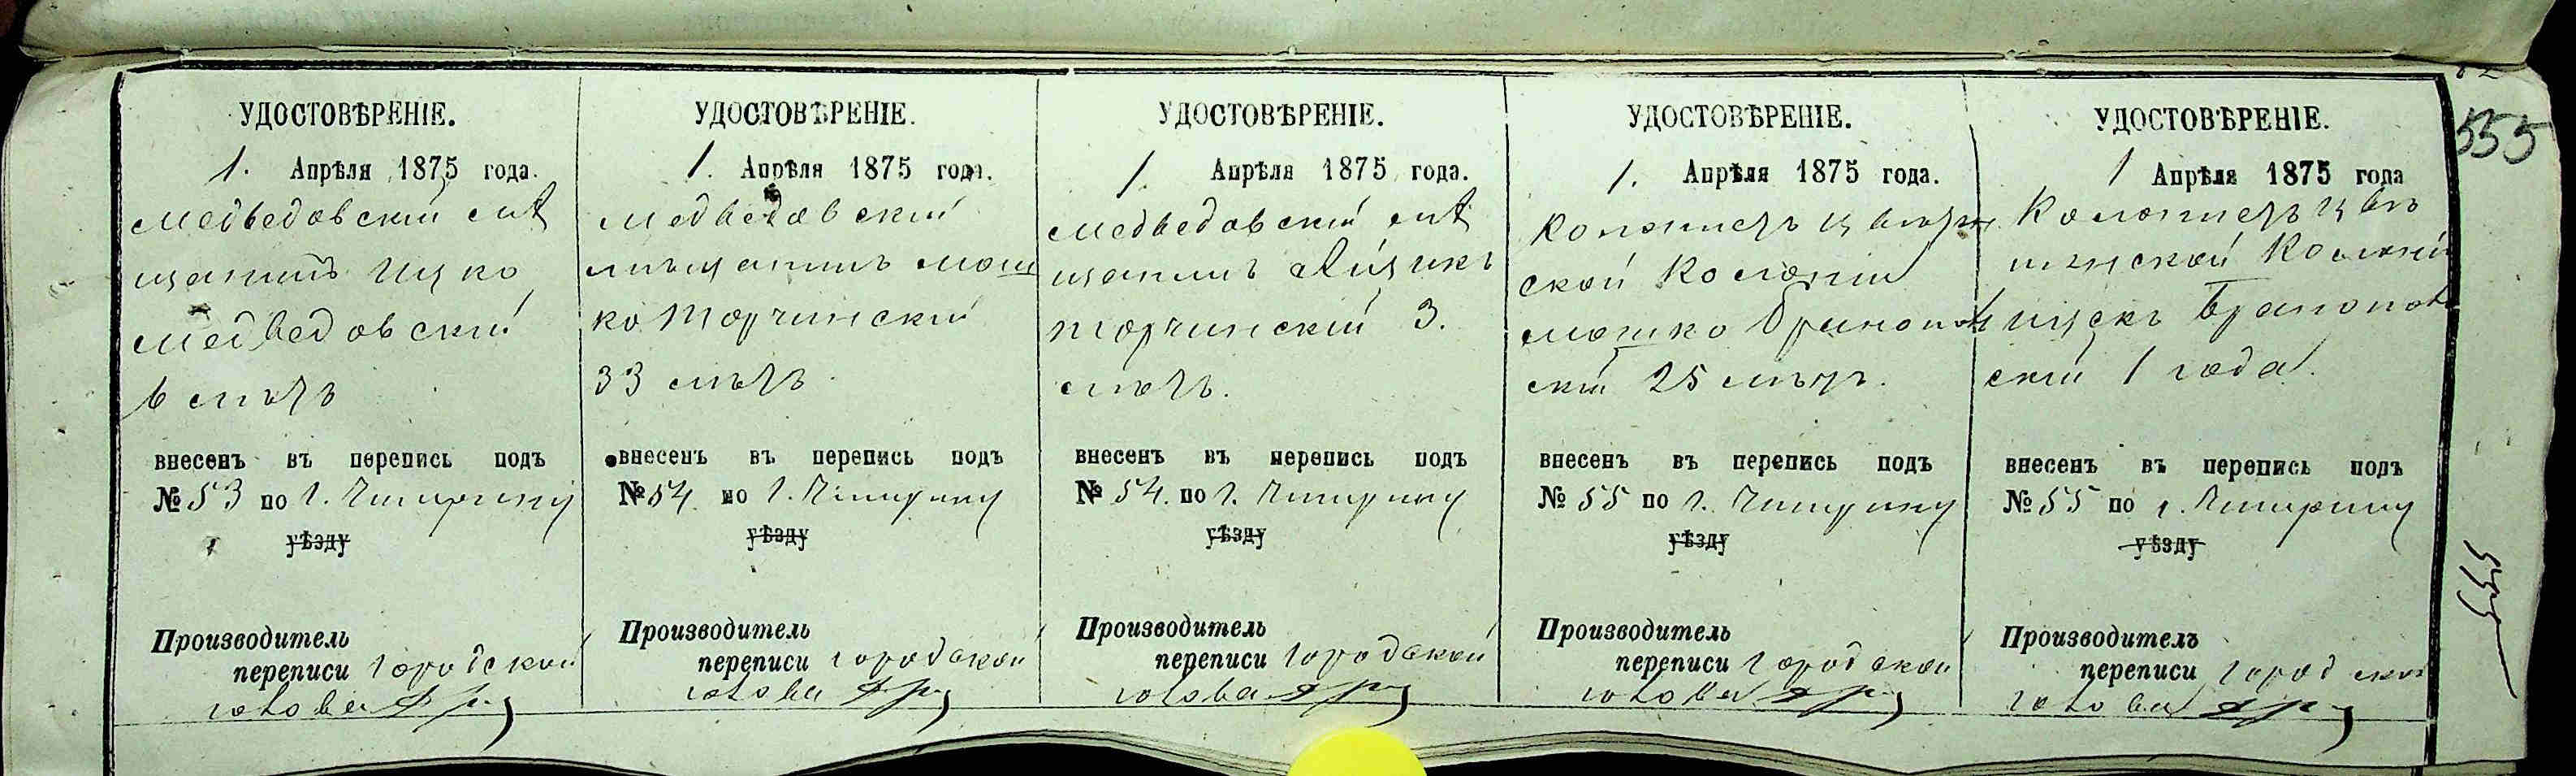 УДОСТОВѢРЕНІЕ.
1. Апрѣля 1875 года.
Медведовскій мѣ
щанинъ Ицко
Медведовскій
6 лѣтъ
внесенъ въ перепись подъ
№ 53 по г. Чигирину
уѣзду
Производитель
переписи Городской
голова
УДОСТОВѢРЕНІЕ.
1. Апрѣля 1875 года.
Медведовскій
мѣщанинъ Мош
ко Торчинскій
33 лѣтъ.
внесенъ въ перепись подъ
№ 54. по г. Чигирину
уѣзду
Производитель
переписи городской
голова
УДОСТОВѢРЕНІЕ.
1. Апрѣля 1875 года.
Медведовскій мѣ
щанинъ Айзикъ
Торчинскій 3.
лѣтъ.
внесенъ въ перепись подъ
№ 54. по г. Чигирину
уѣзду
Производитель
переписи городской
голова
УДОСТОВѢРЕНІЕ.
1. Апрѣля 1875 года.
Колонистъ
ской Колоніи
Мошко
скій 25 лѣтъ.
внесенъ въ перепись подъ
№ 55 по г. Чигирину
уѣзду
Производитель
переписи Городской
голова
УДОСТОВѢРЕНІЕ.
1 Апрѣля 1875 года
Колонистъ
Колоніи
скій 1 года.
внесенъ въ перепись подъ
№ 55 по г. Чигирину
уѣзду
Производитель
переписи Город ской
голова
555
555